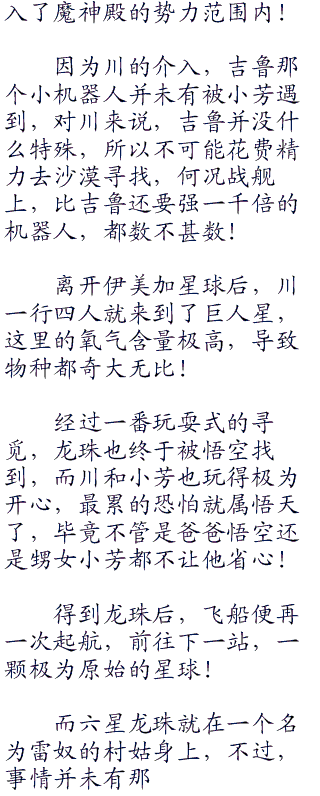 入了魔神殿的势力范围内！
因为川的介入，吉鲁那
个小机器人并未有被小芳遇
到，对川来说，吉鲁并没什
么特殊，所以不可能花费精
力去沙漠寻找，何况战舰
上，比吉鲁还要强一千倍的
机器人，都数不甚数！
离开伊美加星球后，川
一行四人就来到了巨人星，
这里的氧气含量极高，导致
物种都奇大无比！
经过一番玩耍式的寻
觅，龙珠也终于被悟空找
到，而川和小芳也玩得极为
开心，最累的恐怕就属悟天
了，毕竟不管是爸爸悟空还
是甥女小芳都不让他省心！
得到龙珠后，飞船便再
一次起航，前往下一站，一
颗极为原始的星球！
而六星龙珠就在一个名
为雷奴的村姑身上，不过，
事情并未有那